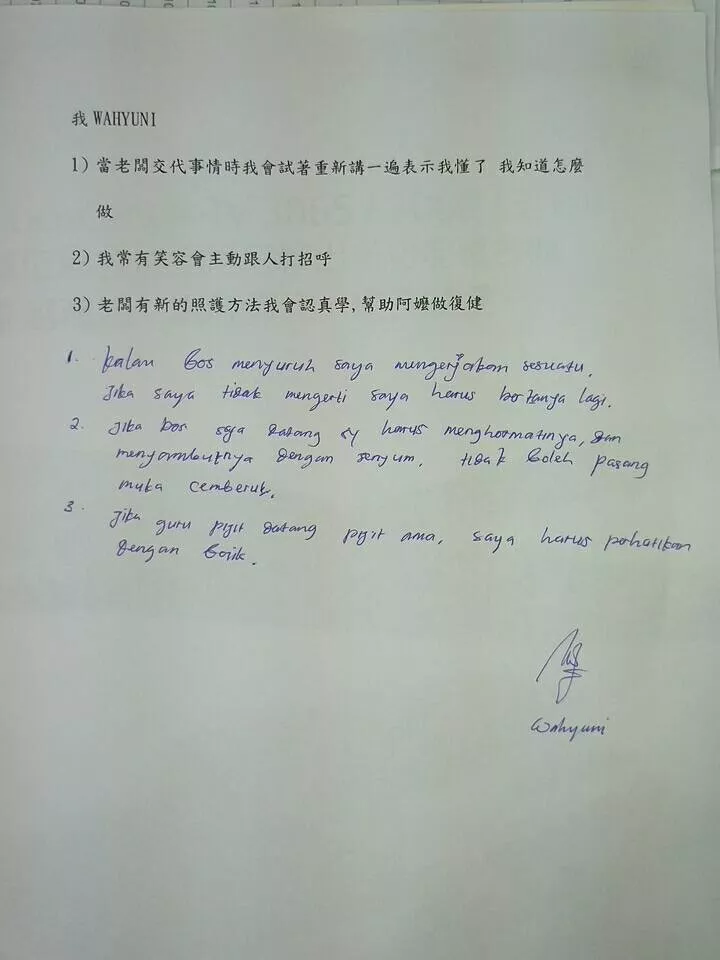 我 WAHYUNI
1) 當老闆交代事情時我會試著重新講一遍表示我懂了 我知道怎麼
做
2) 我常有笑容會主動跟人打招呼
3) 老闆有新的照護方法我會認真學,幫助阿嬤做復健
1. kalau bos menyuruh saya mengerjakan sesuatu.
Jika saya tidak mengerti saya harus bertanya lagi.
2. Jika bos saya datang sy harus menghormatinya, dan
menyambutnya dengan senyum. tidak boleh pasang
muka cemberut.
3. Jika guru pijit datang pijit ama, saya harus perhatikan
dengan baik.
Wahyuni